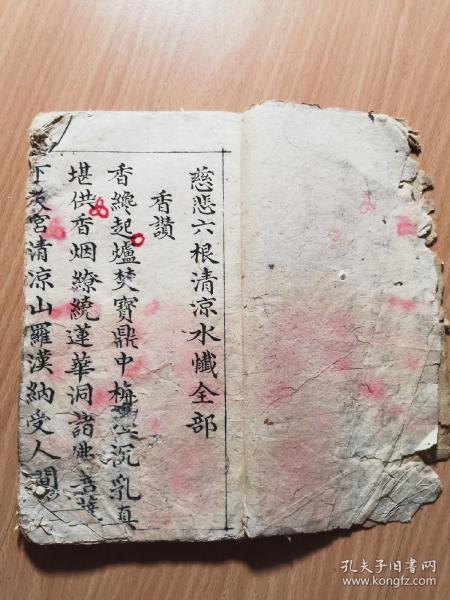 慈悲六根清凉水懺全部
香讚
香纔起爐焚寶鼎中梅檀沉乳真
堪供香烟繚繞蓮華洞諸佛菩薩
下天宮清涼山羅漢納受人間
孔夫子旧书网
www.kongfz.com